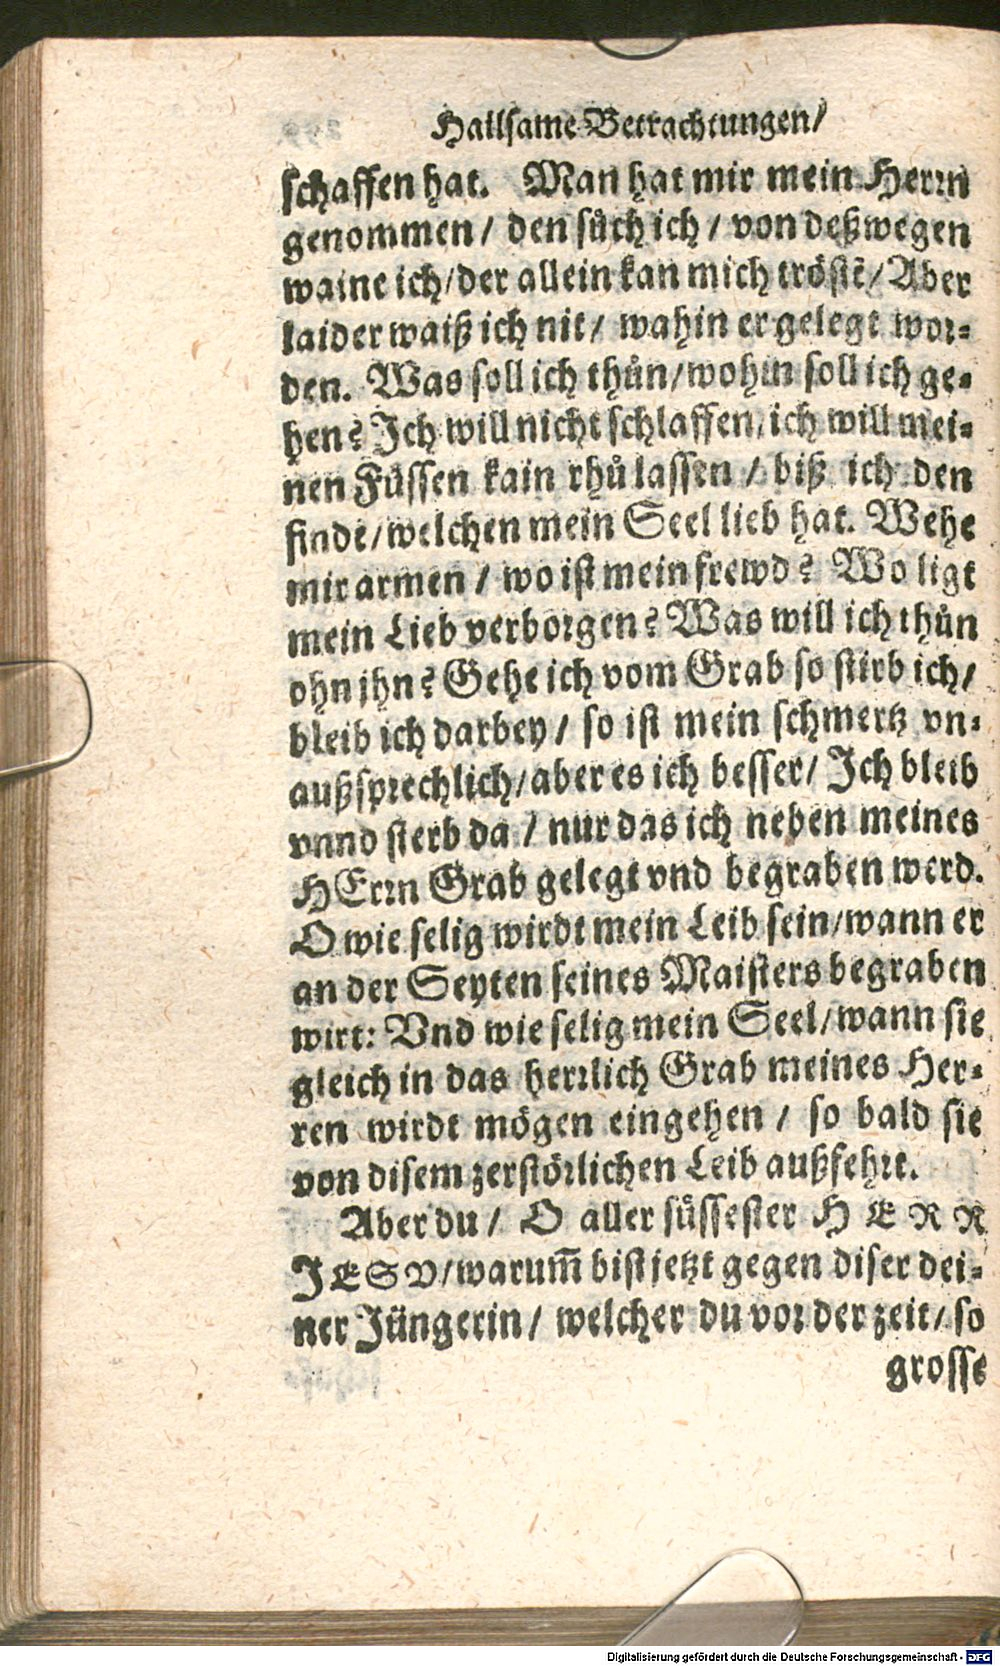 Hailsame Betrachtungen/
schaffen hat. Man hat mir mein Herrn
genommen/ den sůch ich/ von deßwegen
waine ich/der allein kan mich tröstē/Aber
laider waiß ich nit/ wahin er gelegt wor-
den. Was soll ich thůn/wohin soll ich ge-
hen? Ich will nicht schlaffen, ich will mei-
nen Füssen kain rhů lassen / biß ich den
finde/welchen mein Seel lieb hat. Wehe
mir armen / wo ist mein frewd? Wo ligt
mein Lieb verborgen? Was will ich thůn
ohn jhn? Gehe ich vom Grab so stirb ich/
bleib ich darbey/ so ist mein schmertz vn-
außsprechlich/aber es ich besser/ Ich bleib
vnnd sterb da / nur das ich neben meines
HErrn Grab gelegt vnd begraben werd.
O wie selig wirdt mein Leib sein/wann er
an der Seyten seines Maisters begraben
wirt: Vnd wie selig mein Seel/wann sie
gleich in das herrlich Grab meines Her-
ren wirdt mögen eingehen / so bald sie
von disem zerstörlichen Leib außfehrt.
Aber du/ O aller süssester HERR
JESV/warum̄ bist jetzt gegen diser dei-
ner Jüngerin/ welcher du vor der zeit/ so
grosse
Digitalisierung gefördert durch die Deutsche Forschungsgemeinschaft - DFG